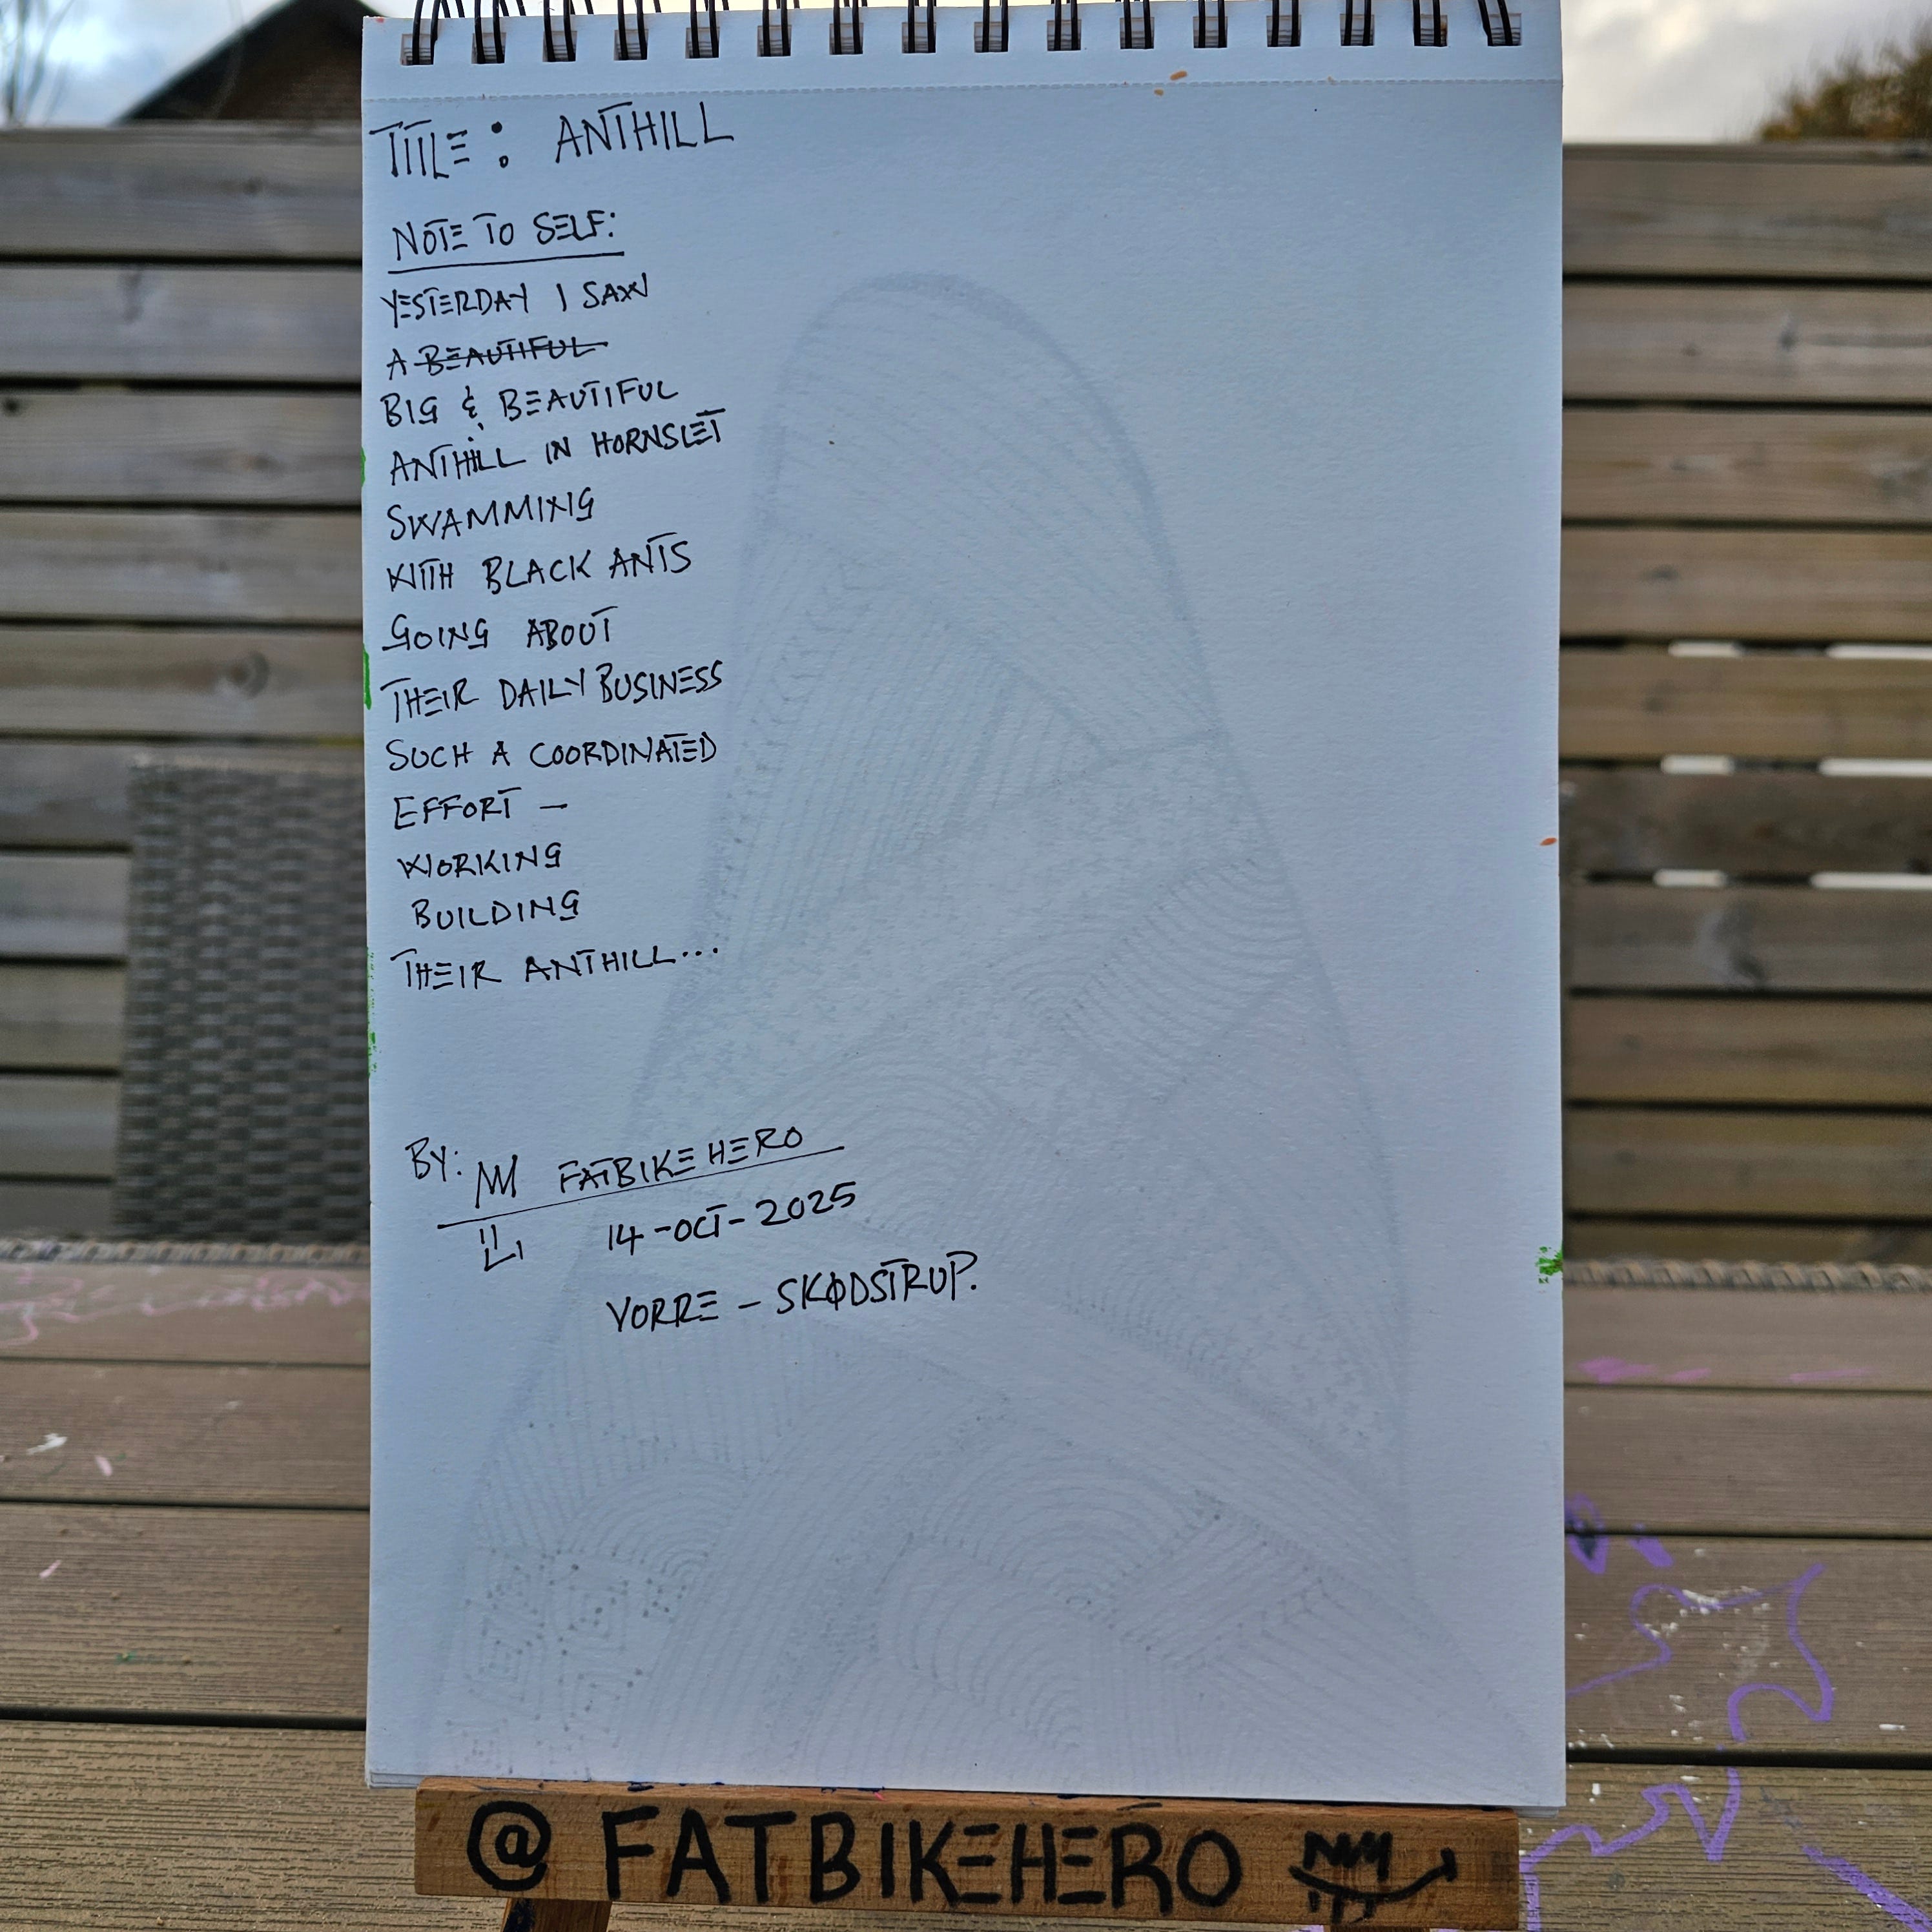 TITLE: ANTHILL
NOTE TO SELF:
YESTERDAY I SAW
A BEAUTIFUL
BIG & BEAUTIFUL
ANTHILL IN HORNSLET
SWAMMING
WITH BLACK ANTS
GOING ABOUT
THEIR DAILY BUSINESS
SUCH A COORDINATED
EFFORT –
WORKING
BUILDING
THEIR ANTHILL...
BY: FATBIKEHERO
14-OCT-2025
VORRE – SKØDSTRUP.
@FATBIKEHERO